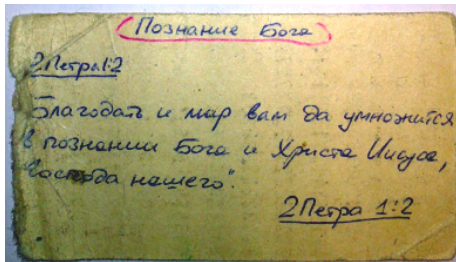 Познание Бога
2 Петра 1:2
Благодать и мир вам да умножится
в познании Бога и Христа Иисуса,
Господа нашего".
2 Петра 1:2